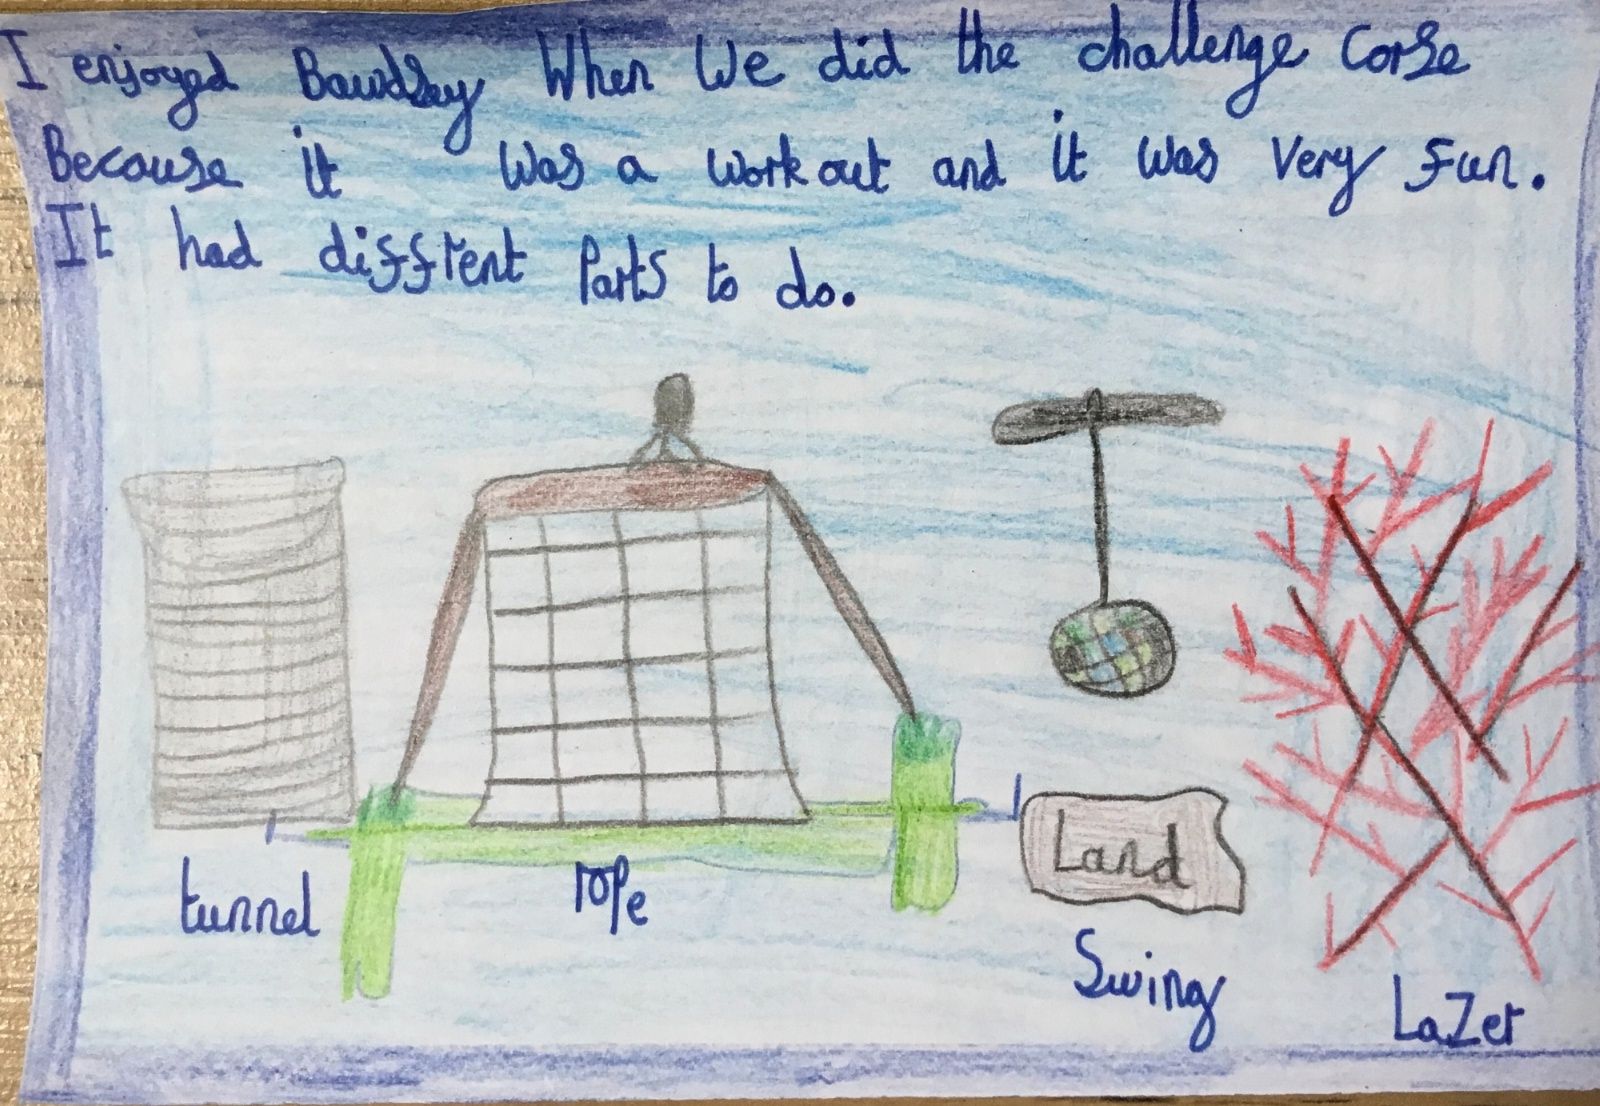 I enjoyed Bawdsey When We did the challenge Corse
Because it was a work out and it was Very Fun.
It had diffrent Parts to do.
Land
tunnel
rope
Swing
LaZer